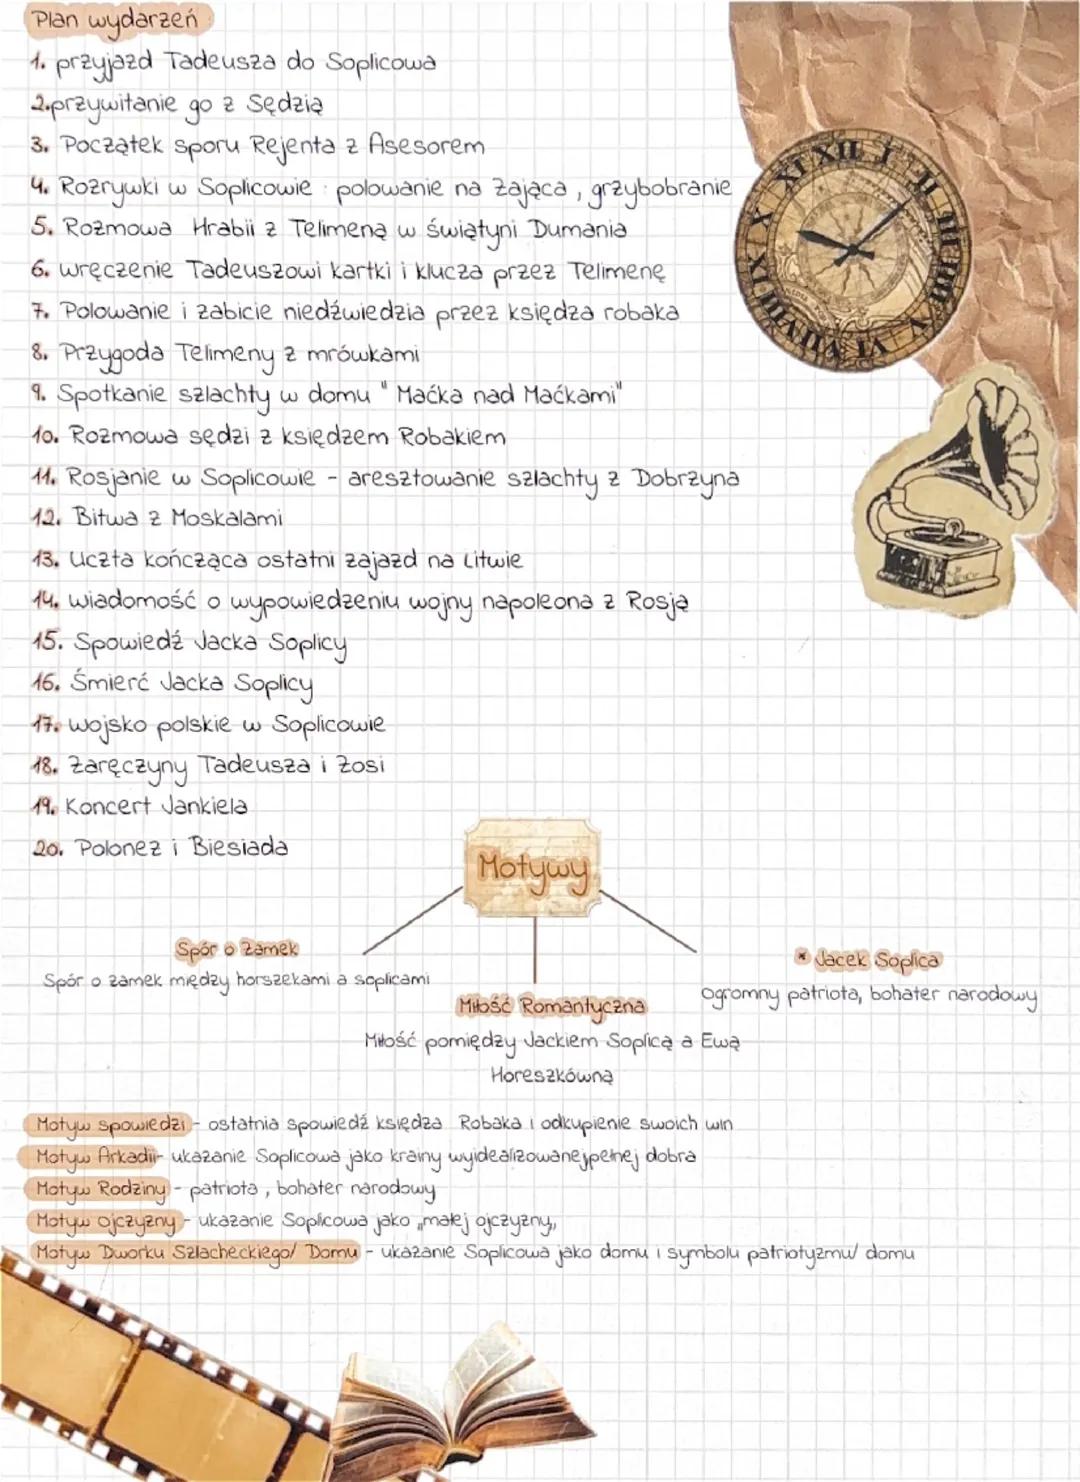 Plan wydarzeń
1. przyjazd Tadeusza do Soplicowa
2. przywitanie go z Sędzią
3. Początek sporu Rejenta z Asesorem
4. Rozrywki w Soplicowie : polowanie na zająca, grzybobranie
5. Rozmowa Hrabii z Telimeną w świątyni Dumania
6. wręczenie Tadeuszowi kartki i klucza przez Telimenę
7. Polowanie i zabicie niedźwiedzia przez księdza robaka
8. Przygoda Telimeny z mrówkami
9. Spotkanie szlachty w domu "Maćka nad Maćkami"
10. Rozmowa sędzi z księdzem Robakiem
11. Rosjanie w Soplicowie - aresztowanie szlachty z Dobrzyna
12. Bitwa z Moskalami
13. Uczta kończąca ostatni zajazd na Litwie
14. wiadomość o wypowiedzeniu wojny napoleona z Rosją
15. Spowiedź Jacka Soplicy
16. Śmierć Jacka Soplicy
17. wojsko polskie w Soplicowie
18. Zaręczyny Tadeusza i Zosi
19. Koncert Jankiela
20. Polonez i Biesiada
Motywy
Spór o zamek
Spór o zamek między horszekami a soplicami
Miłość Romantyczna
Miłość pomiędzy Jackiem Soplicą a Ewą
Horeszkówną
* Jacek Soplica
ogromny patriota, bohater narodowy
Motyw spowiedzi - ostatnia spowiedź księdza Robaka i odkupienie swoich win
Motyw Arkadii - ukazanie Soplicowa jako krainy wyidealizowanej pełnej dobra
Motyw Rodziny - patriota, bohater narodowy
Motyw ojczyzny - ukazanie Soplicowa jako „małej ojczyzny„
Motyw Dworku Szlacheckiego/ Domu - ukazanie Soplicowa jako domu i symbolu patriotyzmu/ domu
XII I II III IIII V VI VII VIII IX X XI